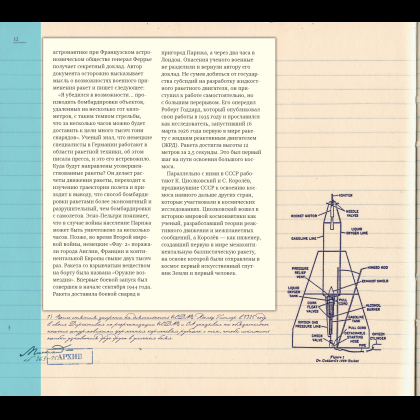 12
астронавтике при Французском астро-
номическом обществе генерал Феррье
получает секретный доклад. Автор
документа осторожно высказывает
мысль о возможностях военного при-
менения ракет и пишет следующее:
«Я убедился в возможности... про-
изводить бомбардировки объектов,
удаленных на несколько сот кило-
метров, с таким темпом стрельбы,
что за несколько часов можно будет
доставить к цели много тысяч тонн
снарядов». Ученый знал, что немецкие
специалисты в Германии работают в
области ракетной техники, об этом
писала пресса, и это его встревожило.
Куда будут направлены усовершен-
ствованные ракеты? Он делает рас-
четы движения ракеты, переходит к
изучению траектории полета и при-
ходит к выводу, что способ бомбарди-
ровки ракетами более экономичный и
разрушительный, чем бомбардировки
с самолетов. Эсно-Пельтри понимает,
что в случае войны население Парижа
может быть уничтожено за несколько
часов. Позже, во время Второй миро-
вой войны, немецкие «Фау-2» поража-
ли города Англии, Франции и конти-
нентальной Европы свыше двух тысяч
раз. Ракета со взрывчатым веществом
на борту была названа «Оружие воз-
мездия». Впервые боевой запуск был
совершен в начале сентября 1944 года.
Ракета доставила боевой снаряд в
пригород Парижа, а через два часа в
Лондон. Опасения ученого военные
не разделили и вернули автору его
доклад. Не сумев добиться от государ-
ства субсидий на разработку жидкост-
ного ракетного двигателя, он при-
ступил к работе самостоятельно, но
с большим перерывом. Его опередил
Роберт Годдард, который опубликовал
свои работы в 1919 году и прославился
как исследователь, запустивший 16
марта 1926 года первую в мире раке-
ту с жидким реактивным двигателем
(ЖРД). Ракета достигла высоты 12
метров за 2,5 секунды. Это был первый
шаг на пути освоения большого кос-
моса.
Параллельно с ними в СССР рабо-
тают К. Циолковский и С. Королёв,
продвинувшие СССР в освоению ко-
смоса намного дальше других стран,
которые участвовали в космических
исследованиях. Циолковский вошел в
историю мировой космонавтики как
ученый, разработавший теорию реак-
тивного движения и межпланетных
сообщений, а Королёв — как инженер,
создавший первую в мире межконти-
нентальную баллистическую ракету,
на основе которой были отправлены в
космос первый искусственный спут-
ник Земли и первый человек.
IGNITER
ROCKET MOTOR
NEEDLE VALVES
GASOLINE LINE
LIQUID OXYGEN LINE
PRESSURE RELIEF VENT
HINGED ROD
EXHAUST SHIELD
LIQUID OXYGEN TANK
ALCOHOL BURNER
CORK FLOAT VALVE
GASOLINE TANK
PULL CORD
OXYGEN GAS PRESSURE LINE
DETACHABLE STARTING HOSE
CHECK VALVE
PIPE
OXYGEN CYLINDER
Figure 1
Dr. Goddard's 1926 Rocket
АРХИВ